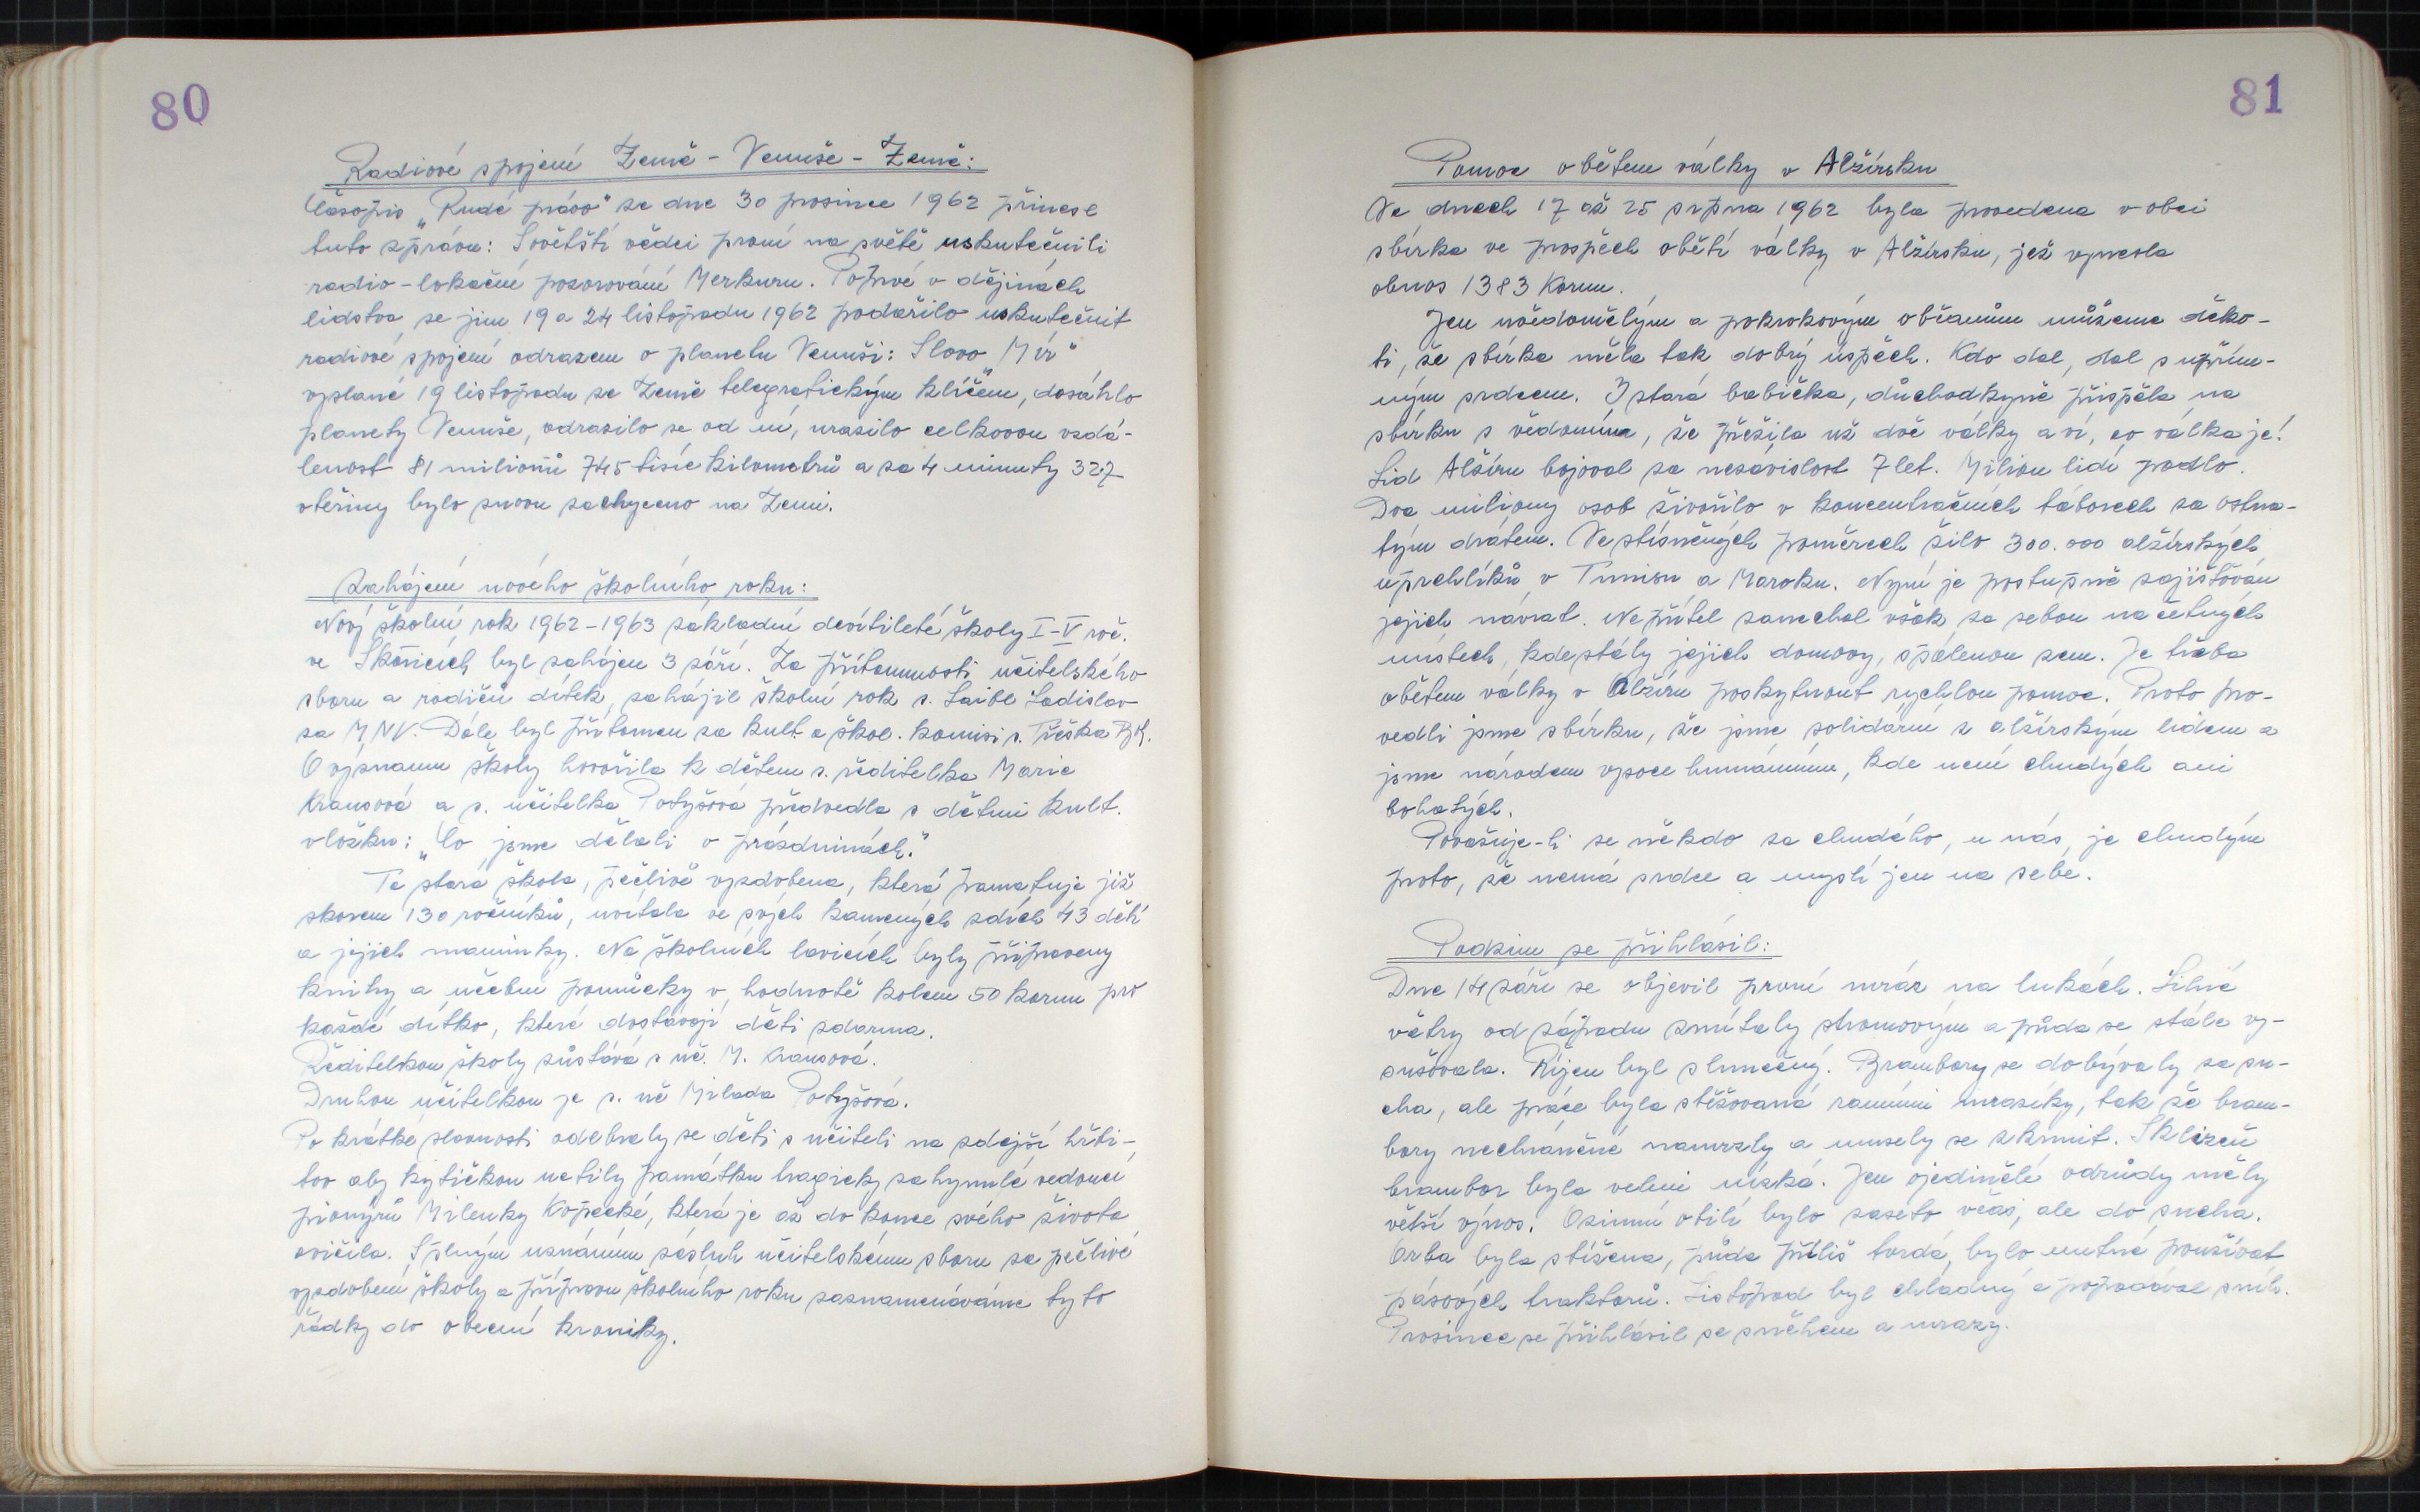 80
Radiové spojení Země - Venuše - Země:
Časopis „Rudé právo" ze dne 30 prosince 1962 přinesl
tuto zprávu: Sovětští vědci první na světě uskutečnili
radio-lokační pozorování Merkuru. Poprvé v dějinách
lidstva se jim 19 a 24 listopadu 1962 podařilo uskutečnit
radiové spojení odrazem o planetu Venuši: Slovo „Mír"
vyslané 19 listopadu ze Země telegrafickým klíčem, dosáhlo
planety Venuše, odrazilo se od ní, urazilo celkovou vzdá-
lenost 81 milionů 745 tisíc kilometrů a za 4 minuty 32,7
vteřiny bylo znovu zachyceno na Zemi.
Zahájení nového školního roku:
Nový školní rok 1962-1963 základní devítileté školy I-V roč.
ve Skořicích byl zahájen 3 září. Za přítomnosti učitelského
sboru a rodičů dítek, zahájil školní rok s. Laibl Ladislav
za MNV. Dále byl přítomen za kult. a škol. komisi s. Tříska
O významu školy hovořila k dětem s. ředitelka Marie
Krausová a s. učitelka Potyšová předvedla s dětmi kult.
vložku: „Co jsme dělali o prázdninách."
Ta stará škola, pečlivě vyzdobena, která pamatuje již
skorem 130 ročníků, uvítala ve svých kamených zdích 43 dětí
a jejich maminky. Na školních lavicích byly připraveny
knihy a učební pomůcky v hodnotě kolem 50 korun pro
každé dítko, které dostávají děti zdarma.
Ředitelkou školy zůstává s uč. M. Krausová.
Druhou učitelkou je s. uč Milada Potyšová.
Po krátké slavnosti odebraly se děti s učiteli na zdejší hřbi-
tov aby kytičkou uctily památku tragicky zahynulé vedoucí
pionýrů Milenky Kopecké, která je až do konce svého života
cvičila. S plným uznáním zásluh učitelskému sboru za pečlivé
vyzdobení školy a přípravu školního roku zaznamenáváme tyto
řádky do obecní kroniky.
81
Pomoc obětem války v Alžírsku
Ve dnech 17 až 25 srpna 1962 byla provedena v obci
sbírka ve prospěch obětí války v Alžírsku, jež vynesla
obnos 1383 Korun.
Jen uvědomělým a pokrokovým občanům můžeme děko-
ti, že sbírka měla tak dobrý úspěch. Kdo dal, dal s upřím-
ným srdcem. I stará babička, důchodkyně přispěla na
sbírku s vědomím, že přežila už dvě války a ví, co válka je!
Lid Alžíru bojoval za nezávislost 7 let. Milion lidí padlo.
Dva miliony osob živořilo v koncentračních táborech za ostna-
tým drátem. Ve stísněných poměrech žilo 300.000 alžírských
uprchlíků v Tunisu a Maroku. Nyní je postupně zajišťován
jejich návrat. Nepřítel zanechal však za sebou na četných
místech, kde stály jejich domovy, spálenou zem. Je třeba
obětem války v Alžíru poskytnout rychlou pomoc. Proto pro-
vedli jsme sbírku, že jsme solidární s alžírským lidem a
jsme národem vysoce humánním, kde není chudých ani
bohatých.
Považuje-li se někdo za chudého, u nás, je chudým
proto, že nemá srdce a myslí jen na sebe.
Podzim se přihlásil:
Dne 14 září se objevil první mráz na lukách. Silné
větry od západu zmítaly stromovým a půda se stále vy-
sušovala. Říjen byl slunečný. Brambory se dobývaly za su-
cha, ale práce byla stěžovaná ranními mrazíky, tak že bram-
bory nechráněné namrzly a musely se zkrmit. Sklizeň
brambor byla velmi nízká. Jen ojedinělé odrůdy měly
větší výnos. Ozimní obilí bylo zaseto včas, ale do sucha.
Orba byla stížena, půda příliš tvrdá, bylo nutné používat
pásových traktorů. Listopad byl chladný a popadával sníh.
Prosinec se přihlásil se sněhem a mrazy.